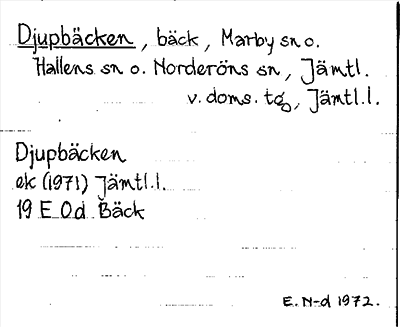 Djupbäcken, bäck, Marby sn o.
Hallens sn o. Norderöns sn, Jämtl.
v. doms. tg, Jämtl.l.
Djupbäcken
ek (1971) Jämtl.l.
19 E 0d Bäck
E. N-d 1972.